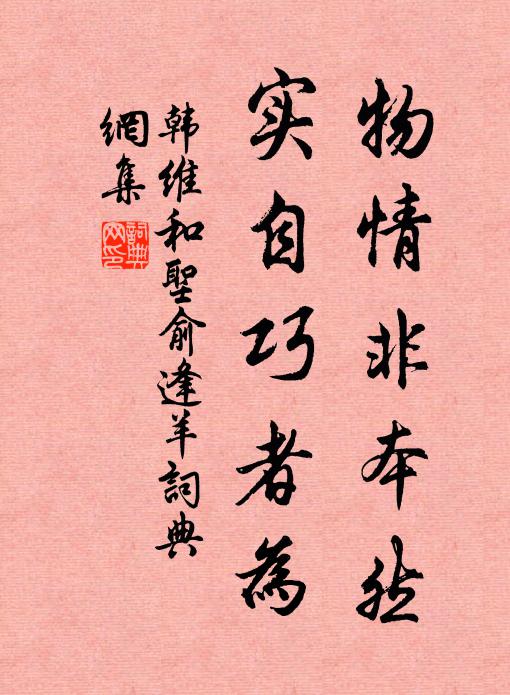 物情非本然
实自巧者為
韩维和聖俞逢羊詞典
網集
詞典
网印